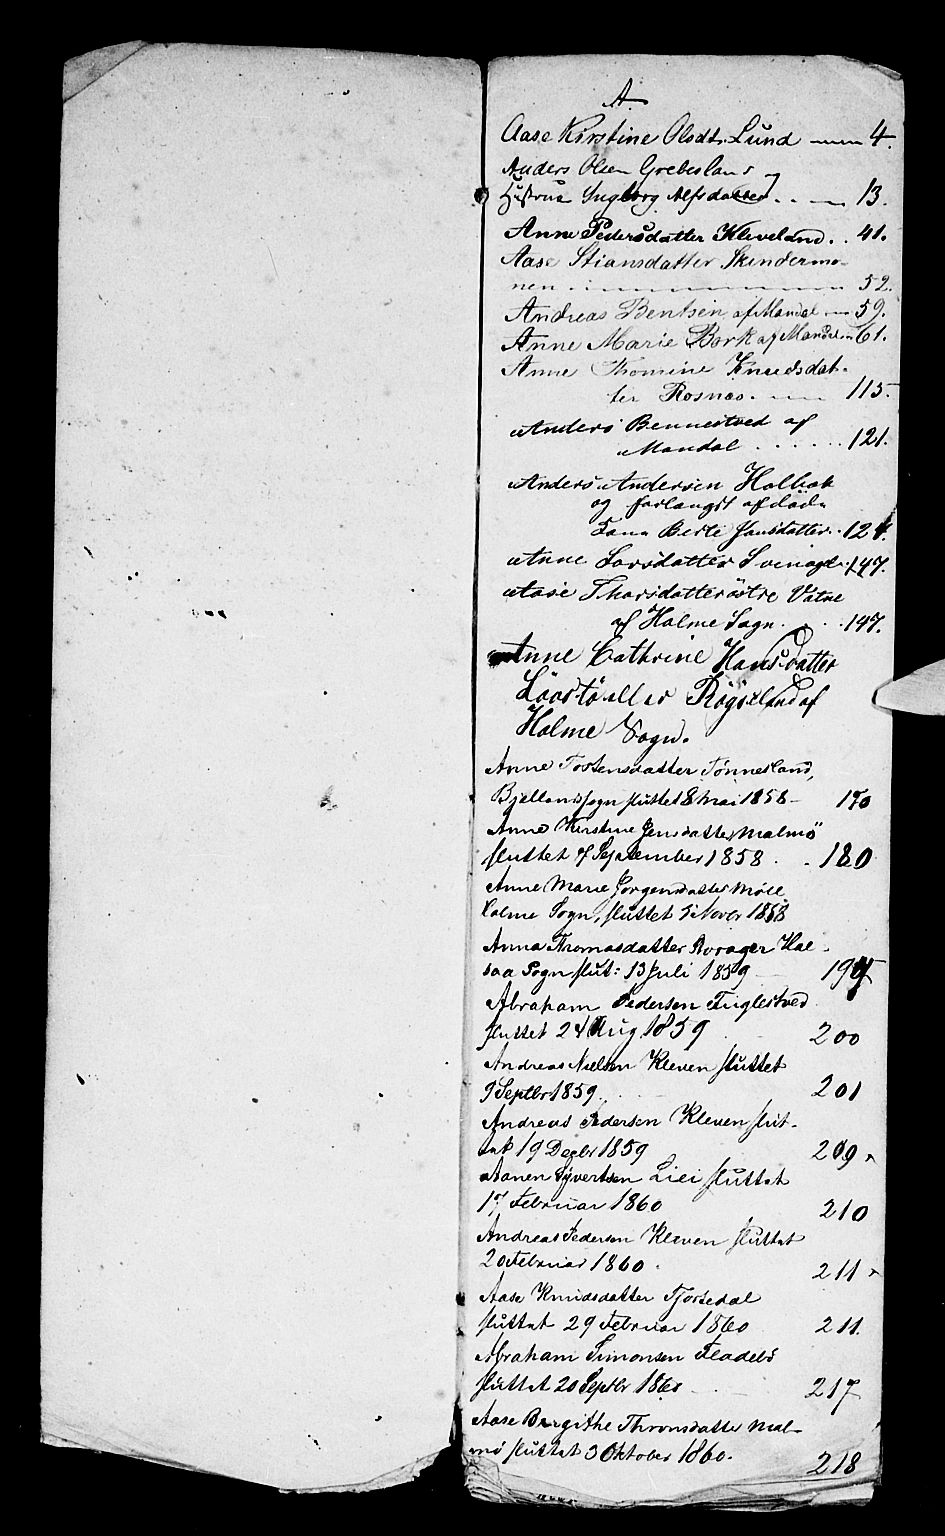 A.
Aase Kirstine Olsdtr. Lund 4.
Anders Olsen Grebesland og
Hustrue Ingborg Alfsdatter. 13.
Anne Pedersdatter Kleveland. . 41.
Aase Stiansdatter Skindermo-
nen 52.
Andreas Bentsen af Mandal 59.
Anne Marie Bork af Mandal 61.
Anne Thomine Knudsdat-
ter Rosnæs. 115.
Anders Bennestved af
Mandal . . . . . . 121.
Anders Andersen Holbæk
og forlangst afdöde
Berte Jansdatter. . 124.
Anne Larsdatter 147.
Aase Tharsdatter östre Vatne
af Holme Sogn . . . 147.
Anne Cathrine Hansdatter
eller Rögseland af
Holme Sogn.
Anne Tostensdatter Tönnesland,
Bjellandsogn sluttet 8 Mai 1858 - 170
Anne Kirstine Jensdatter Malmö
sluttet 7 September 1858 . . 180
Anne Marie Jorgensdatter Möll
Holme Sogn, sluttet 5 Novbr 1858
Anna Thomasdatter Hal-
saa Sogn slut: 13 Juli 1859 195
Abraham Pedersen Fuglestved
sluttet 24 Aug 1859 200
Andreas Nielsen Kleven sluttet
9 Septbr 1859. 201
Andreas Pedersen Kleven slut-
tet 19 Decbr 1859 209
Aanen Syvertsen Liei sluttet
17 Februar 1860 210
Andreas Pedersen Kleven sluttet
20 Februar 1860 . 211
Aase Knudsdatter Fjorsedal
sluttet 29 Februar 1860 211.
Abraham Simonsen Fladebö
sluttet 20 Septbr 1860 217
Aase Birgithe Thronsdatter Mal-
mö sluttet 3 Oktober 1860. 218